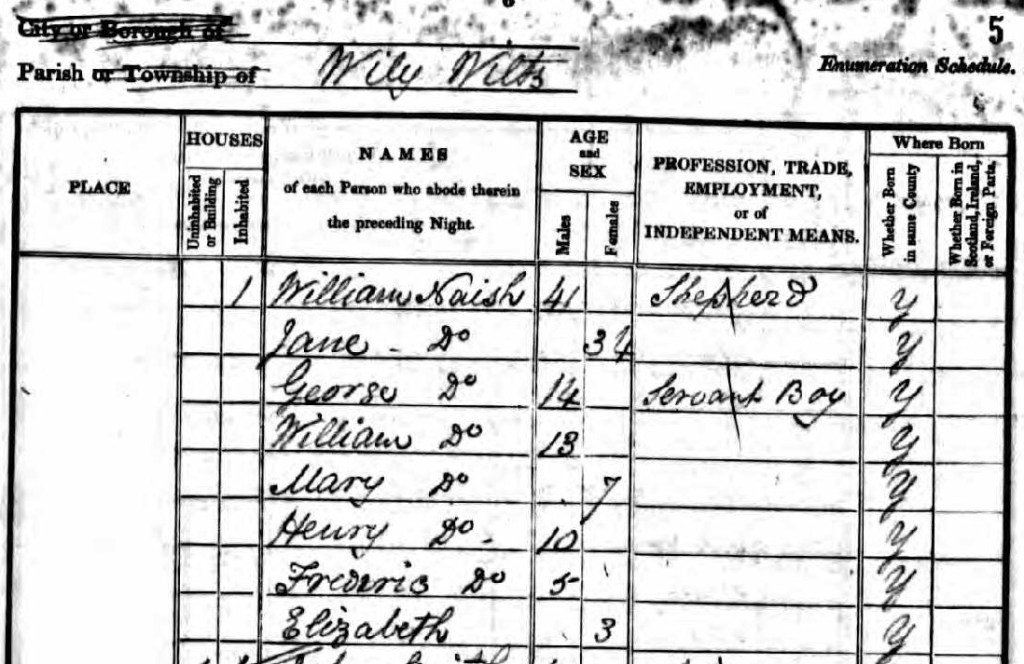 City or Borough of
5
Parish or Township of Wily Wilts
Enumeration Schedule.
PLACE
HOUSES
Uninhabited or Building
Inhabited
NAMES
of each Person who abode therein
the preceding Night.
AGE
and
SEX
Males
Females
PROFESSION, TRADE,
EMPLOYMENT,
or of
INDEPENDENT MEANS.
Where Born
Whether Born in same County
Whether Born in Scotland, Ireland, or Foreign Parts.
1 William Naish 41 Shepherd y
Jane - Do 34 y
George Do 14 Servant Boy y
William Do 13 y
Mary Do 7 y
Henry Do - 10 y
Frederic Do 5 y
Elizabeth 3 y